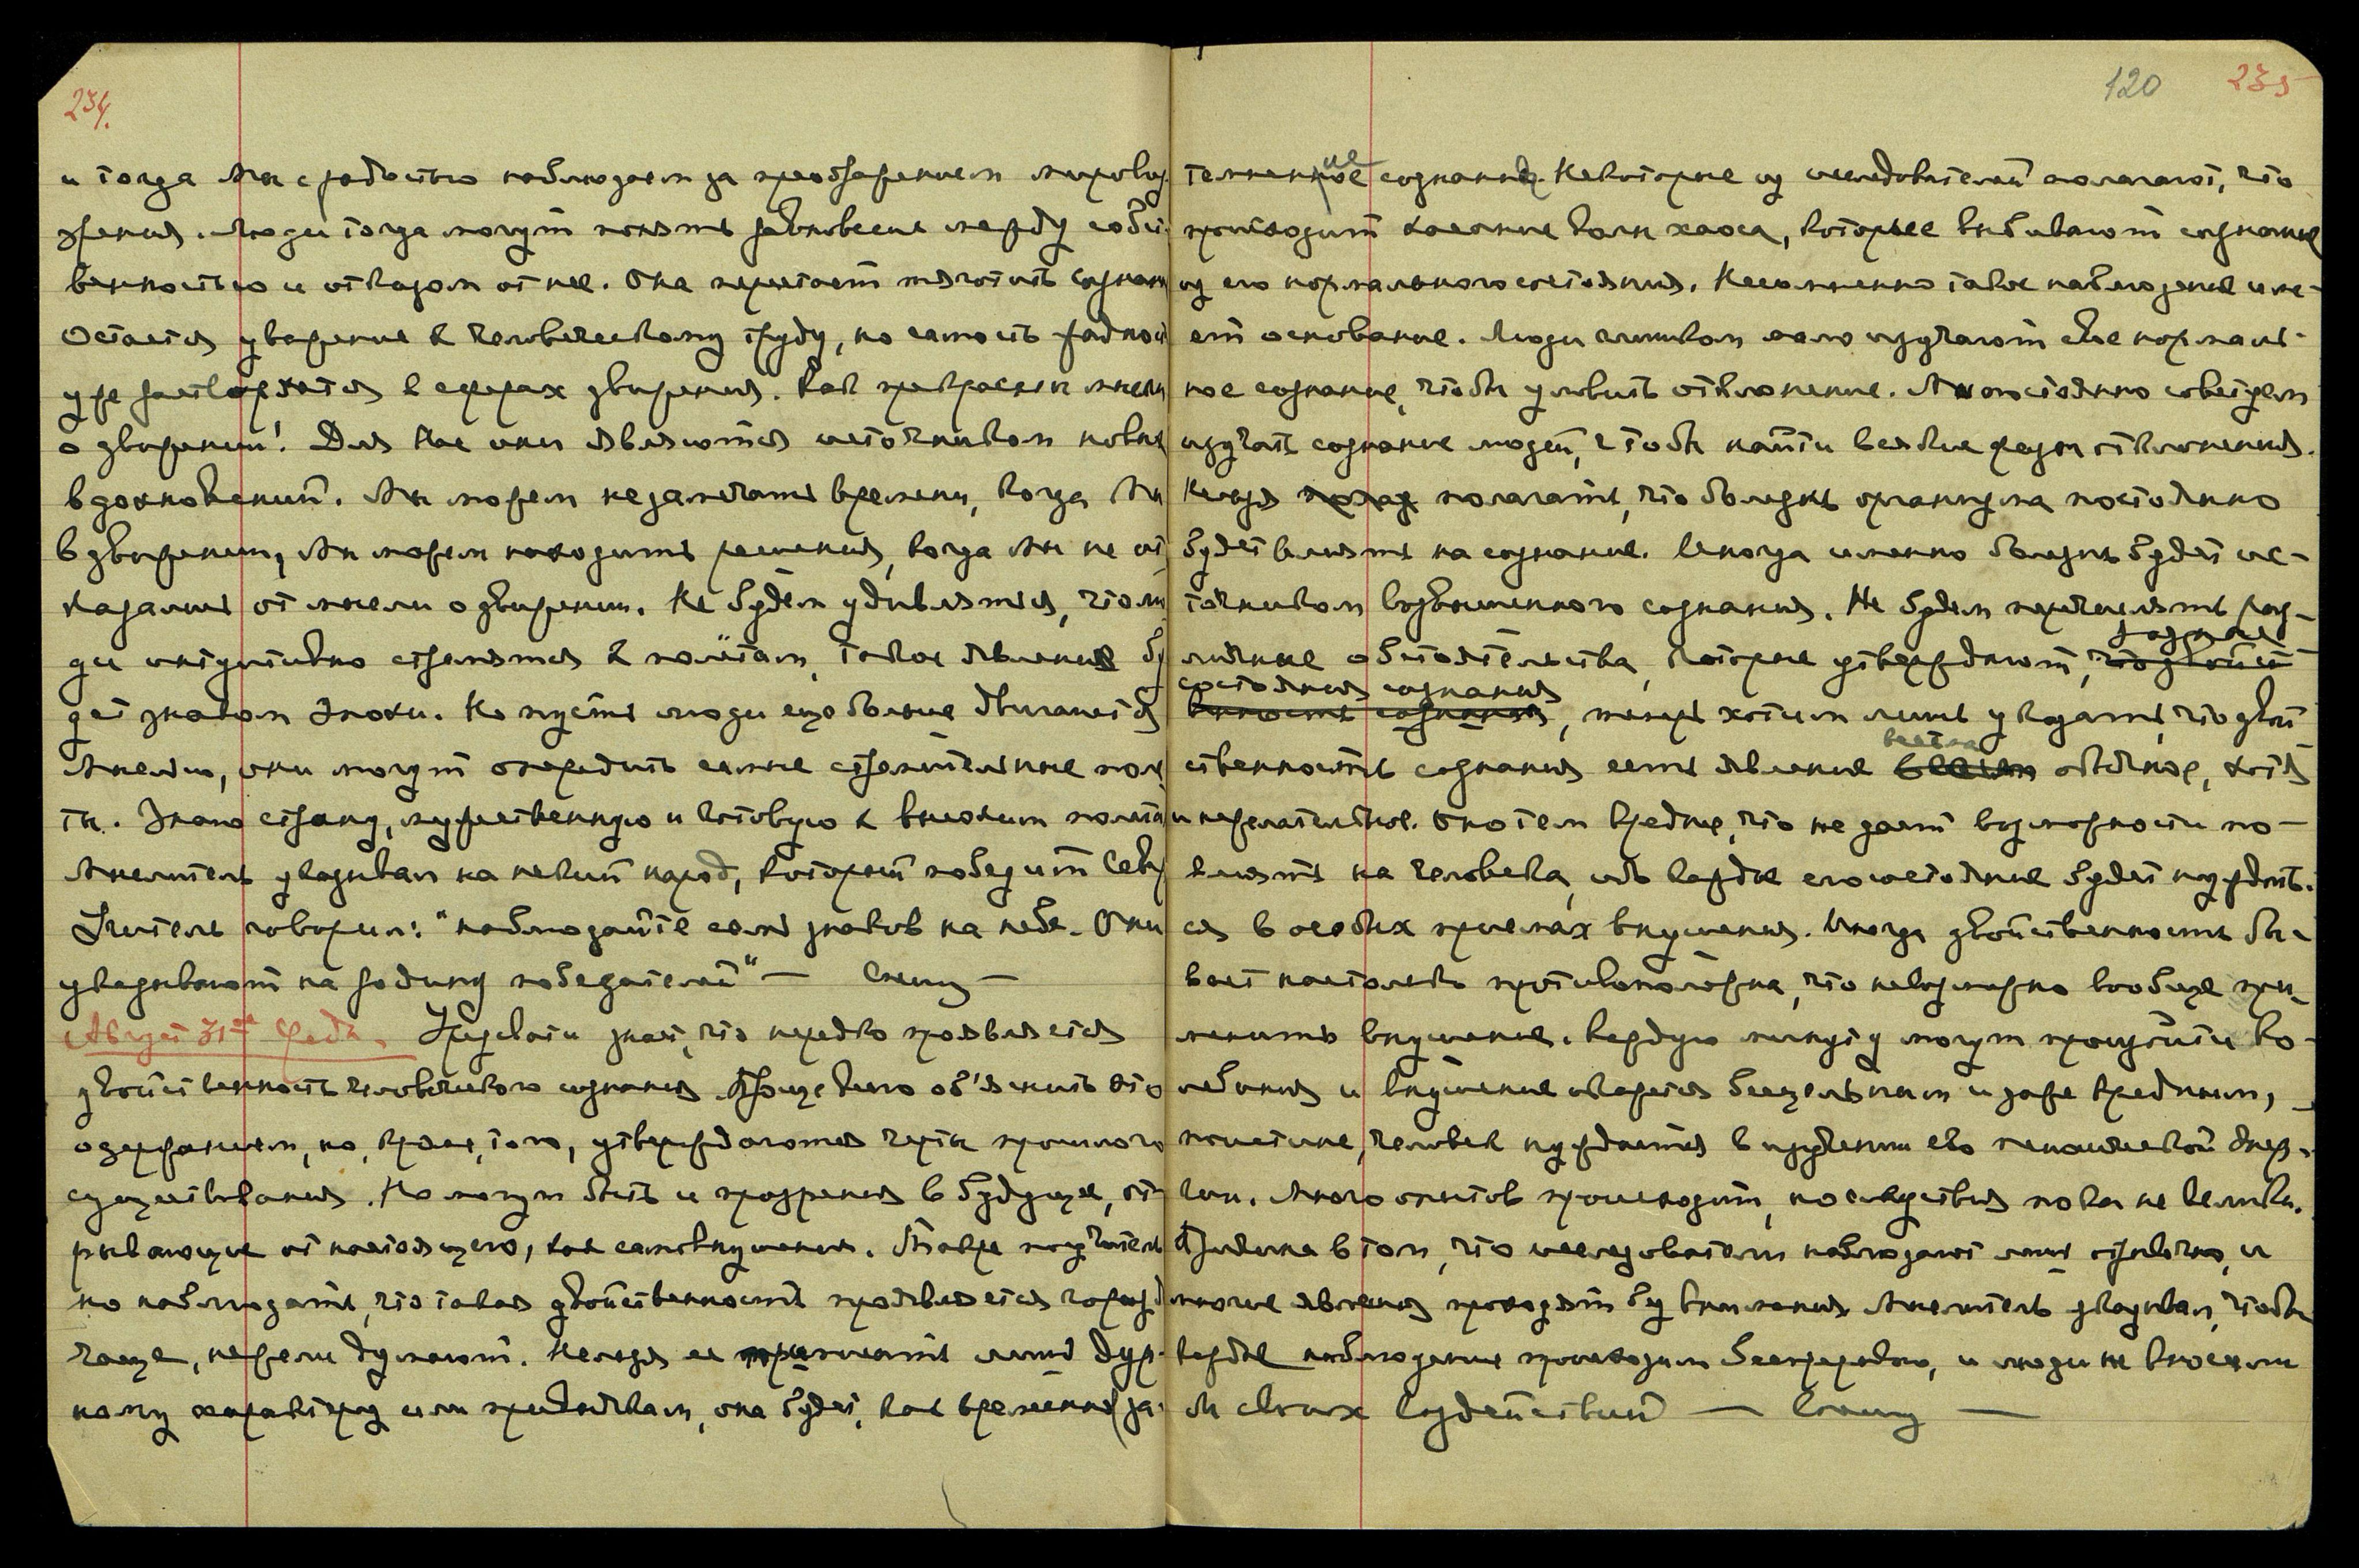 234.
и тогда Мы с радостью наблюдаем за преображением мирово
зрения. Люди тогда могут понять равновесие между собст
венностью и отказом от нее. Она перестает тяготить сознан
Остается уважение к человеческому труду, но самость
уже растворяется в сферах движения. Как прекрасны мысли
о движении! Для Нас они являются источником новых
вдохновений. Мы можем не замечать времени, когда Мы
в движении, Мы можем находить решения, когда Мы не от
казались от мысли о движении. Не будем удивляться, что лю
ди инстинктивно стремятся к полётам, такое явление бу
дет знаком Эпохи. Но пусть люди ещо больше двигаются
Мыслью, они могут опередить самые стремительные полё
ты. Знаю страну, мужественную и готовую к высоким полётам
Мыслитель указывал на некий народ, который победит
Учитель говорил: "наблюдайте семь знаков на небе. Они
указывают на родину победителей" — Спешу —
Август 31ое Среда. Урусвати знает, что нередко проявляется
двойственность человеческого сознания. Проще всего об'яснить это
одержанием, но, кроме, того, утверждаются черты прошлого
существования. Но могут быть и прозрения в будущее, от
рывающие от настоящего, как самовнушения. Также поучитель
но наблюдать, что такая двойственность проявляется гораздо
чаще, нежели думают. Нельзя ее приписать лишь дур-
ному характеру или привычкам, она будет, как временное за
120 235
темненное сознание. Некоторые из исследователей полагают, что
происходит касание волн хаоса, которые выбивают сознание
из его нормального состояния. Несомненно такое наблюдение име-
ет основание. Люди слишком мало изучают свое нормаль-
ное сознание, чтобы уловить отклонение. Мы постоянно советуем
изучать сознание людей, чтобы найти всякие отклонения.
Нельзя полагать, что болезнь организма постоянно
будет влиять на сознание. Иногда именно болезнь будет ис-
точником возвышенного сознания. Не будем перечислять раз-
личные обстоятельства, которые утверждают, разные
состояния сознания, теперь хотим лишь указать, что двой
ственность сознания есть явление весьма обычное, хотя
и нежелательное. Оно тем вреднее, что не дает возможности по-
влиять на человека, ибо каждое его состояние будет нуждать-
ся в особых приемах внушения. Иногда двойственность бы-
вает настолько противоположна, что невозможно вообще при-
менить внушение. Каждую минуту могут произойти ко-
лебания и внушение окажется бесцельным и даже вредным,
поистине, человек нуждается в изучении его психической энер-
гии. Много опытов происходит, но следствия пока не велики.
Причина в том, что исследователи наблюдают лишь отрывочно, и
многие явления проходят без внимания Мыслитель указывал, чтобы
каждое наблюдение происходило беспрерывно, и люди не вносили
бы своих воздействий — Спешу —